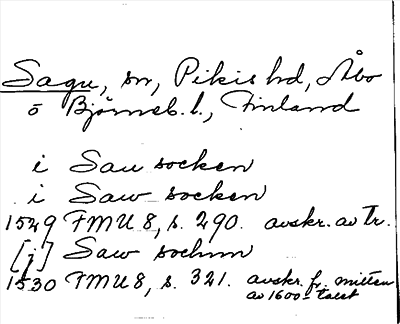 Sagu, sn, Pikis hd, Åbo
o Björneb. l., Finland
i Sau socken
i Saw socken
1529 FMU 8, s. 290. avskr. av Tr.
[j] Saw sochnn
1530 FMU 8, s. 321. avskr. fr. mitten
av 1600-talet